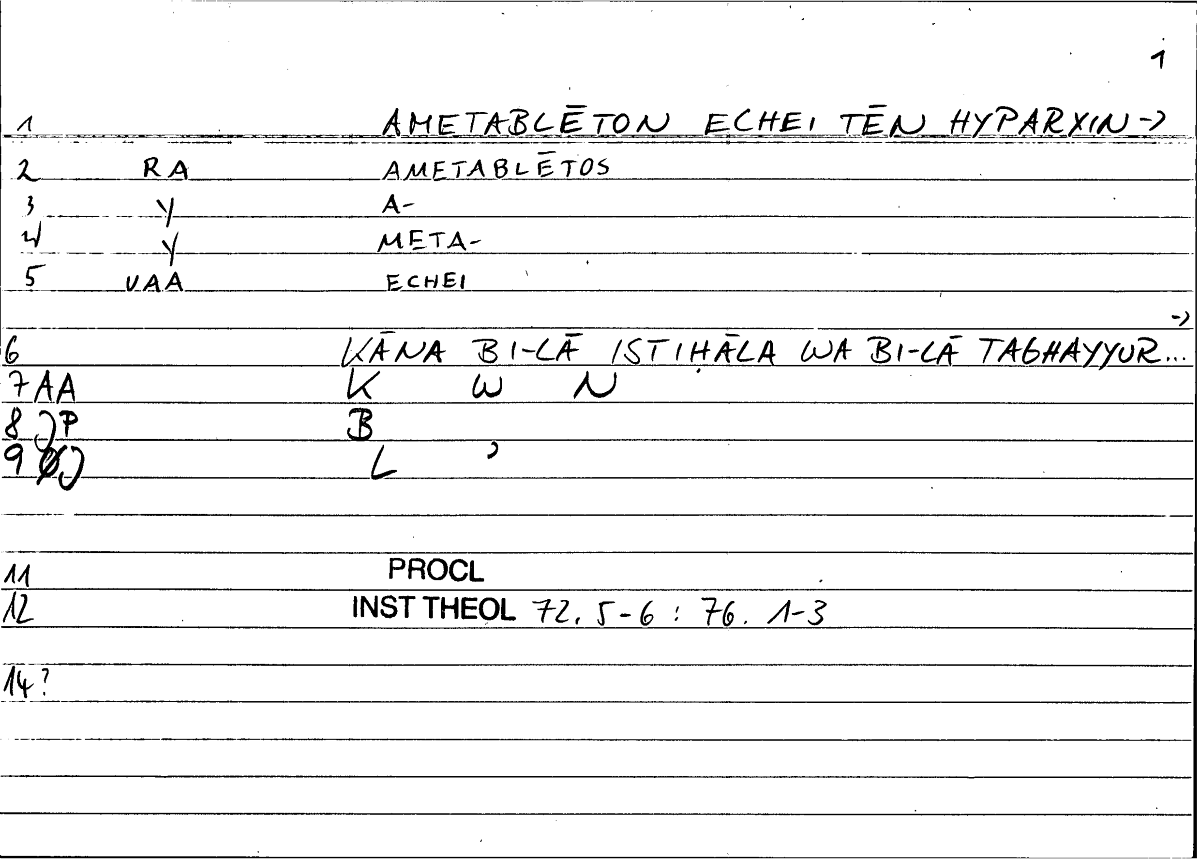 1
1 AMETABLĒTON ECHEI TĒN HYPARXIN->
2 RA AMETABLĒTOS
3 Y A-
4 Y META-
5 VAA ECHEI
->
6 KĀNA BI-LĀ ISTIḤĀLA WA BI-LĀ TAGHAYYUR...
7 AA K W N
8 JP B
9 J L ʾ
11 PROCL
12 INST THEOL 72. 5-6 : 76. 1-3
14?